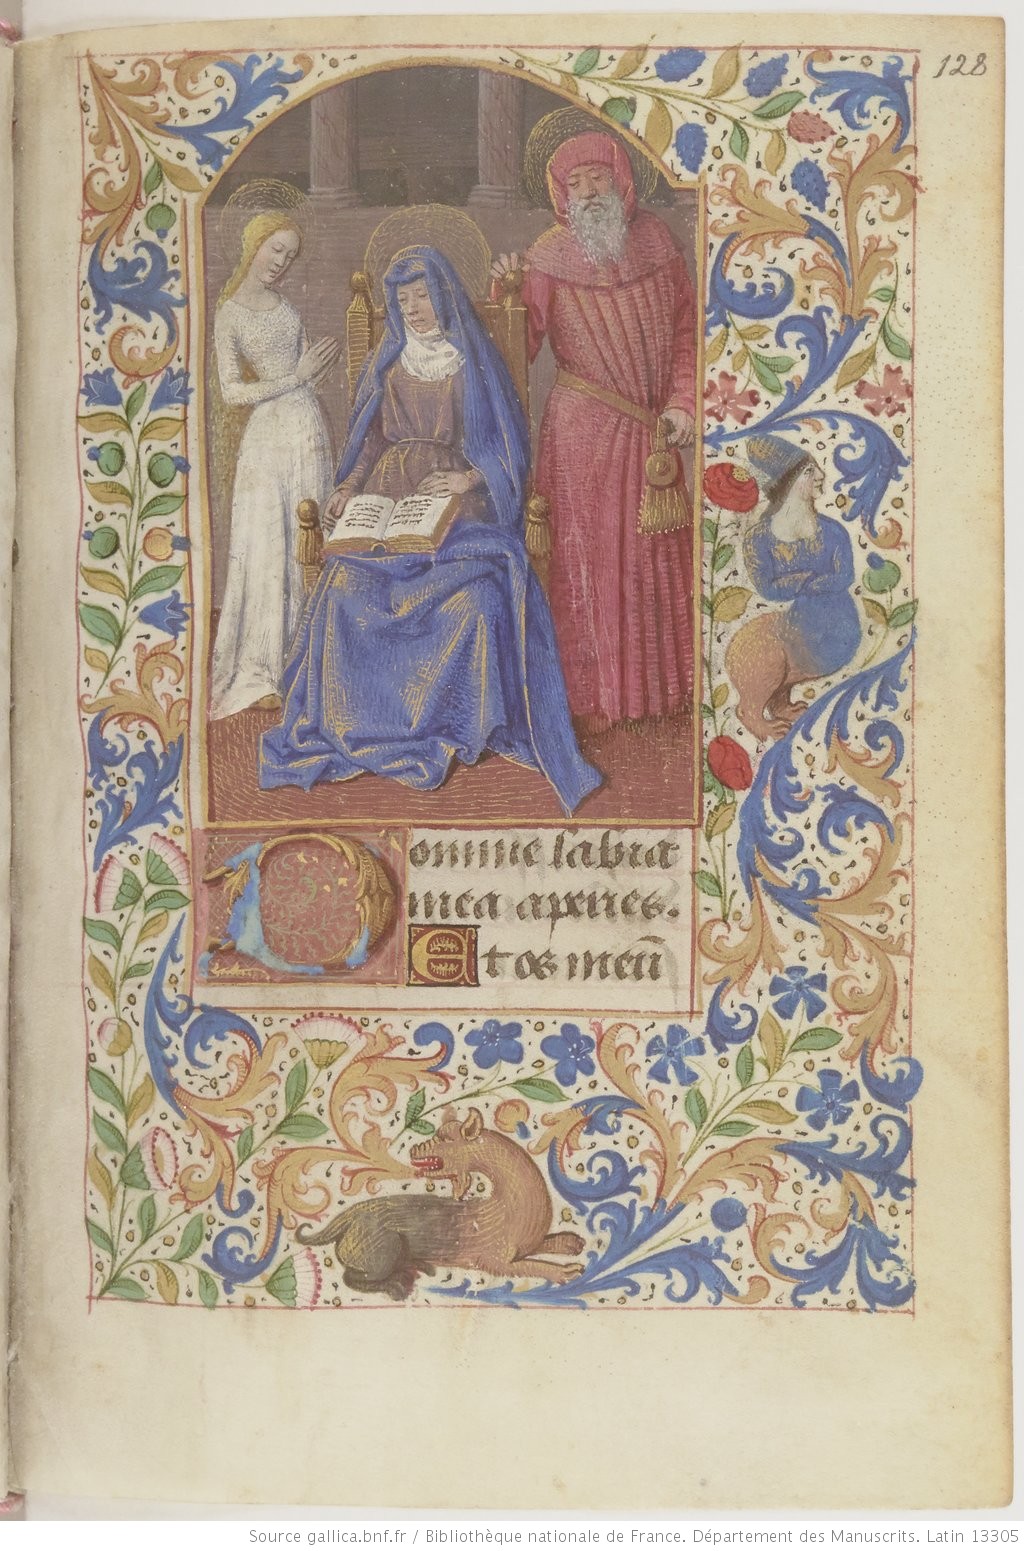 128
Domine labia
mea aperies.
Et os meū
Source gallica.bnf.fr / Bibliothèque nationale de France. Département des Manuscrits. Latin 13305